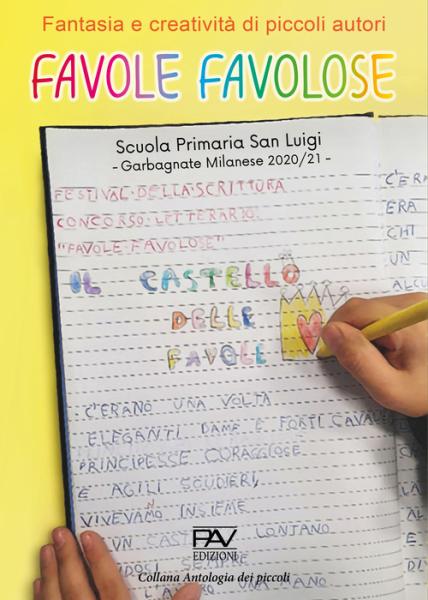 Fantasia e creatività di piccoli autori
FAVOLE FAVOLOSE
Scuola Primaria San Luigi
- Garbagnate Milanese 2020/21 -
FESTIVAL DELLA SCRITTURA
CONCORSO LETTERARIO
"FAVOLE FAVOLOSE"
IL CASTELLO
DELLE
FAVOLE
C'ERANO UNA VOLTA
ELEGANTI DAME E FORTI CAVAL
PRINCIPESSE CORAGGIOSE
E AGILI SCUDIERI,
VIVEVANO INSIEME
UN CAST LONTANO
SEMPRE
UNA MANO
C'ERA
ERA
CHI
UN
ALCU
PAV
EDIZIONI
Collana Antologia dei piccoli